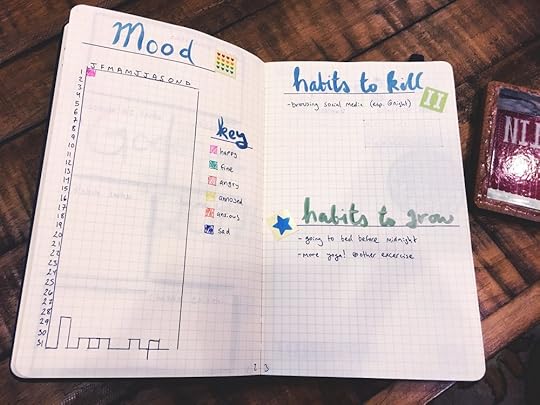 Mood
J F M A M J J A S O N D
1
2
3
4
5
6
7
8
9
10
11
12
13
14
15
16
17
18
19
20
21
22
23
24
25
26
27
28
29
30
31
key
happy
fine
angry
annoyed
anxious
sad
2
habits to kill
-browsing social media (esp. @night)
habits to grow
-going to bed before midnight
-more yoga! @other excercise
3